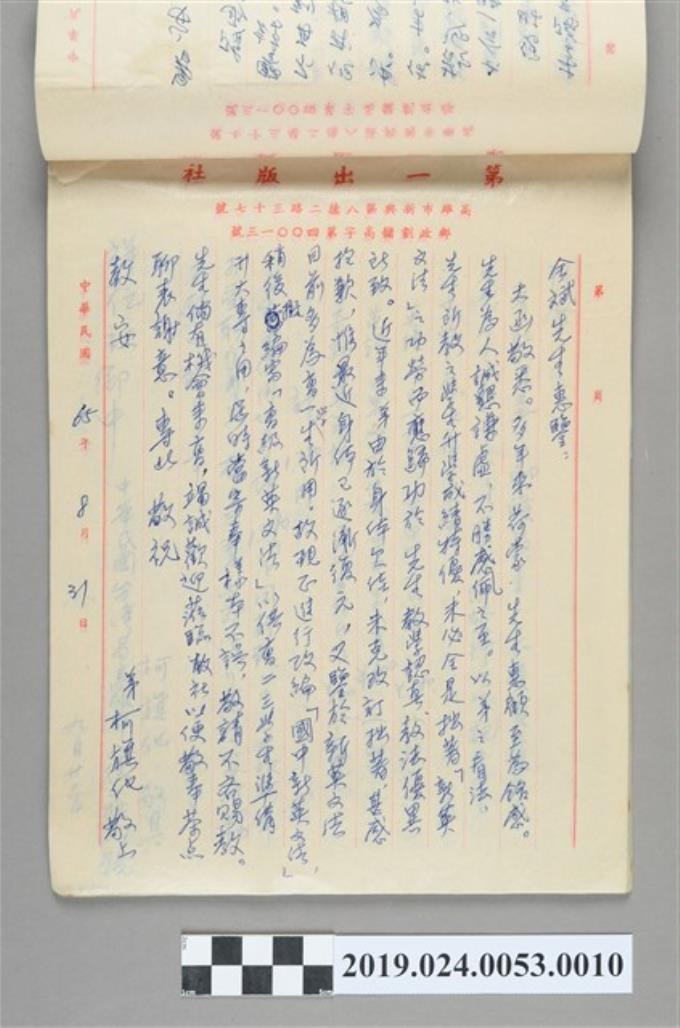 第一出版社
高雄市新興區八德二路三十七號
郵政劃儲高字第四〇〇一三號
第 周
全斌先生惠鑒：
大函敬悉。多年來荷蒙 先生惠顧至為銘感。
先生為人誠懇謙虛，不勝感佩之至。以弟之看法，
先生所教之學生升學成績特優，未必全是拙著「新英
文法」之功勞而應歸功於 先生教學認真、教法優異
所致。近年來弟由於身体欠佳，未克改訂拙著，甚感
抱歉，惟最近身体已逐漸復元，又鑒於新英文法
目前多為高一學生所用，故現正進行改編「國中新英文法」，
稍後擬編寫「高級新英文法」以供高二三學生準備
升大專之用，屆時當寄奉樣本不誤，敬請不吝賜教。
先生倘有機會來高，竭誠歡迎蒞臨敝社以便敬奉茶点
聊表謝意。專此 敬祝
教安
弟 柯旗化 敬上
中華民國 65年 8月 31日
2019.024.0053.0010